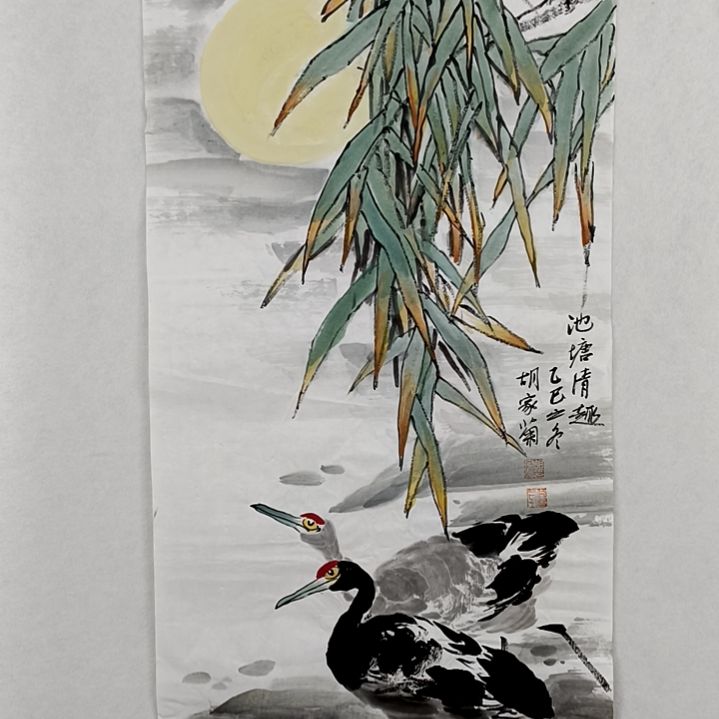 池塘清趣
乙巳之冬
胡家菊